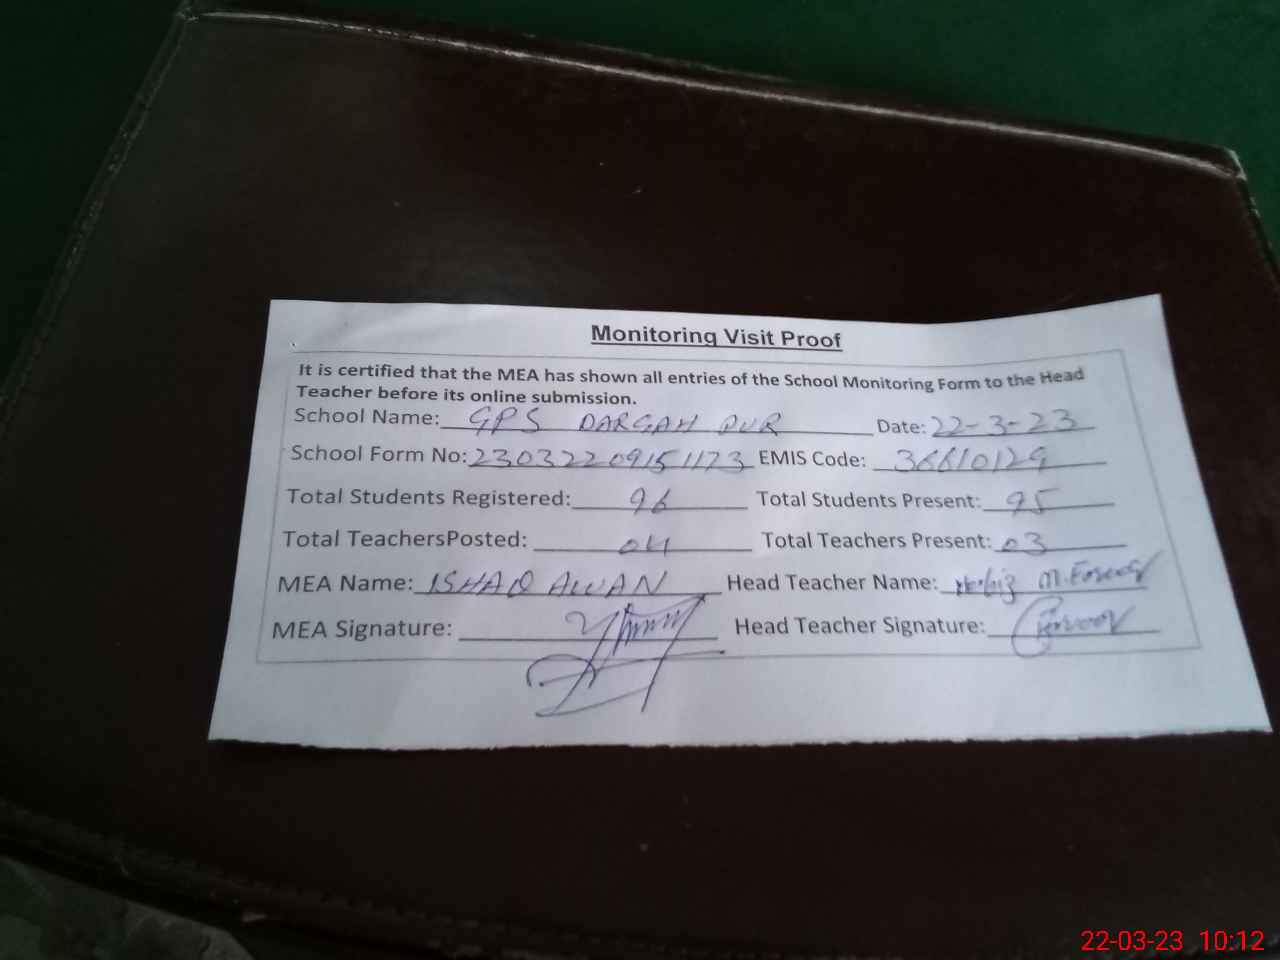 Monitoring Visit Proof
It is certified that the MEA has shown all entries of the School Monitoring Form to the Head
Teacher before its online submission.
School Name: GPS DARGAH PUR Date: 22-3-23
School Form No: 23032209151173 EMIS Code: 36610129
Total Students Registered: 96 Total Students Present: 95
Total TeachersPosted: 04 Total Teachers Present: 03
MEA Name: ISHAQ AWAN Head Teacher Name: M.
MEA Signature: Head Teacher Signature:
22-03-23 10:12